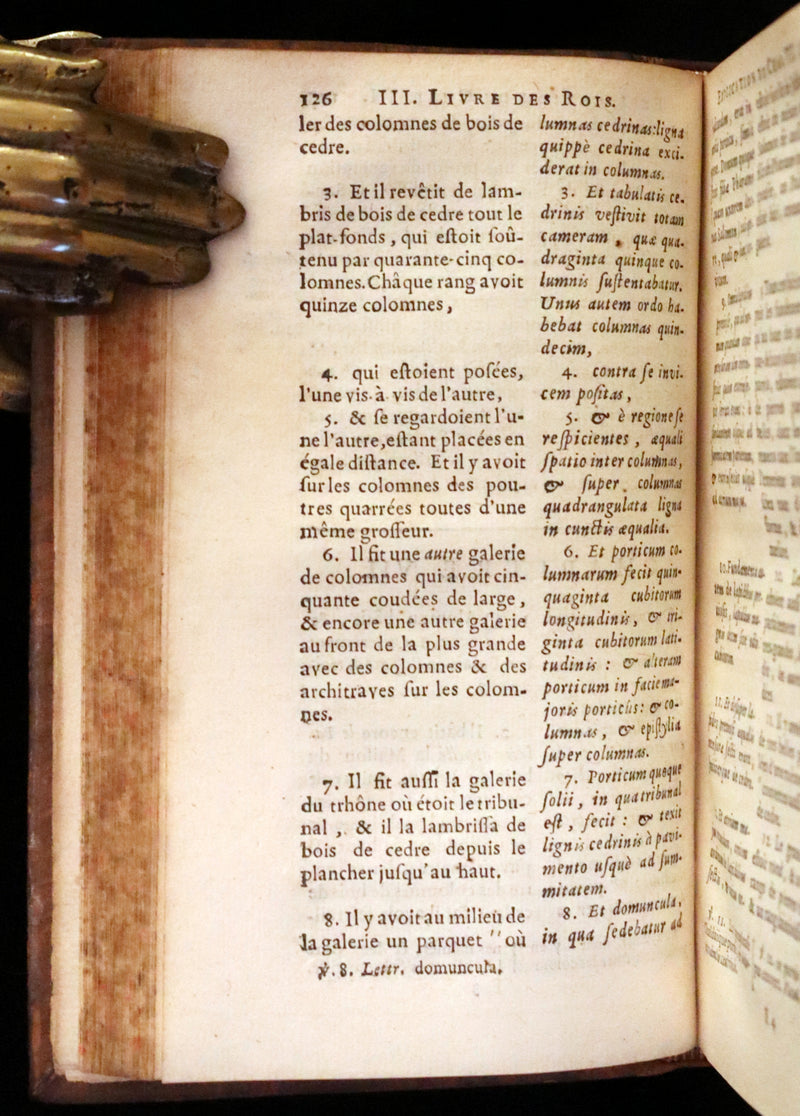 126 III. LIVRE DES ROIS.
ler des colomnes de bois de
cedre.
3. Et il revêtit de lam-
bris de bois de cedre tout le
plat-fonds, qui eſtoit ſoû-
tenu par quarante-cinq co-
lomnes. Châque rang avoit
quinze colomnes,
4. qui eſtoient poſées,
l'une vis-à vis de l'autre,
5. & ſe regardoient l'u-
ne l'autre, eſtant placées en
égale diſtance. Et il y avoit
ſur les colomnes des pou-
tres quarrées toutes d'une
même groſſeur.
6. Il fit une autre galerie
de colomnes qui avoit cin-
quante coudées de large,
& encore une autre galerie
au front de la plus grande
avec des colomnes & des
architraves ſur les colom-
nes.
7. Il fit auſſi la galerie
du trhône où étoit le tribu-
nal, & il la lambriſſa de
bois de cedre depuis le
plancher juſqu'au haut.
8. Il y avoit au milieu de
la galerie un parquet '' où
℣. 8. Lettr. domuncula.
lumnas cedrinas: ligna
quippè cedrina exci-
derat in columnas.
3. Et tabulatis ce-
drinis veſtivit totam
cameram, quæ qua-
draginta quinque co-
lumnis ſuſtentabatur.
Unus autem ordo ha-
bebat columnas quin-
decim,
4. contra ſe invi-
cem poſitas,
5. & è regione ſe
reſpicientes, æquali
ſpatio inter columnas,
& ſuper columnas
quadrangulata ligna
in cunctis æqualia.
6. Et porticum co-
lumnarum fecit quin-
quaginta cubitorum
longitudinis, & tri-
ginta cubitorum lati-
tudinis : & alteram
porticum in facie ma-
joris porticûs: & co-
lumnas, & epiſtylia
ſuper columnas.
7. Porticum quoque
ſolii, in qua tribunal
eſt, fecit : & texit
lignis cedrinis à pavi-
mento uſquè ad ſum-
mitatem.
8. Et domuncula,
in qua ſedebatur ad